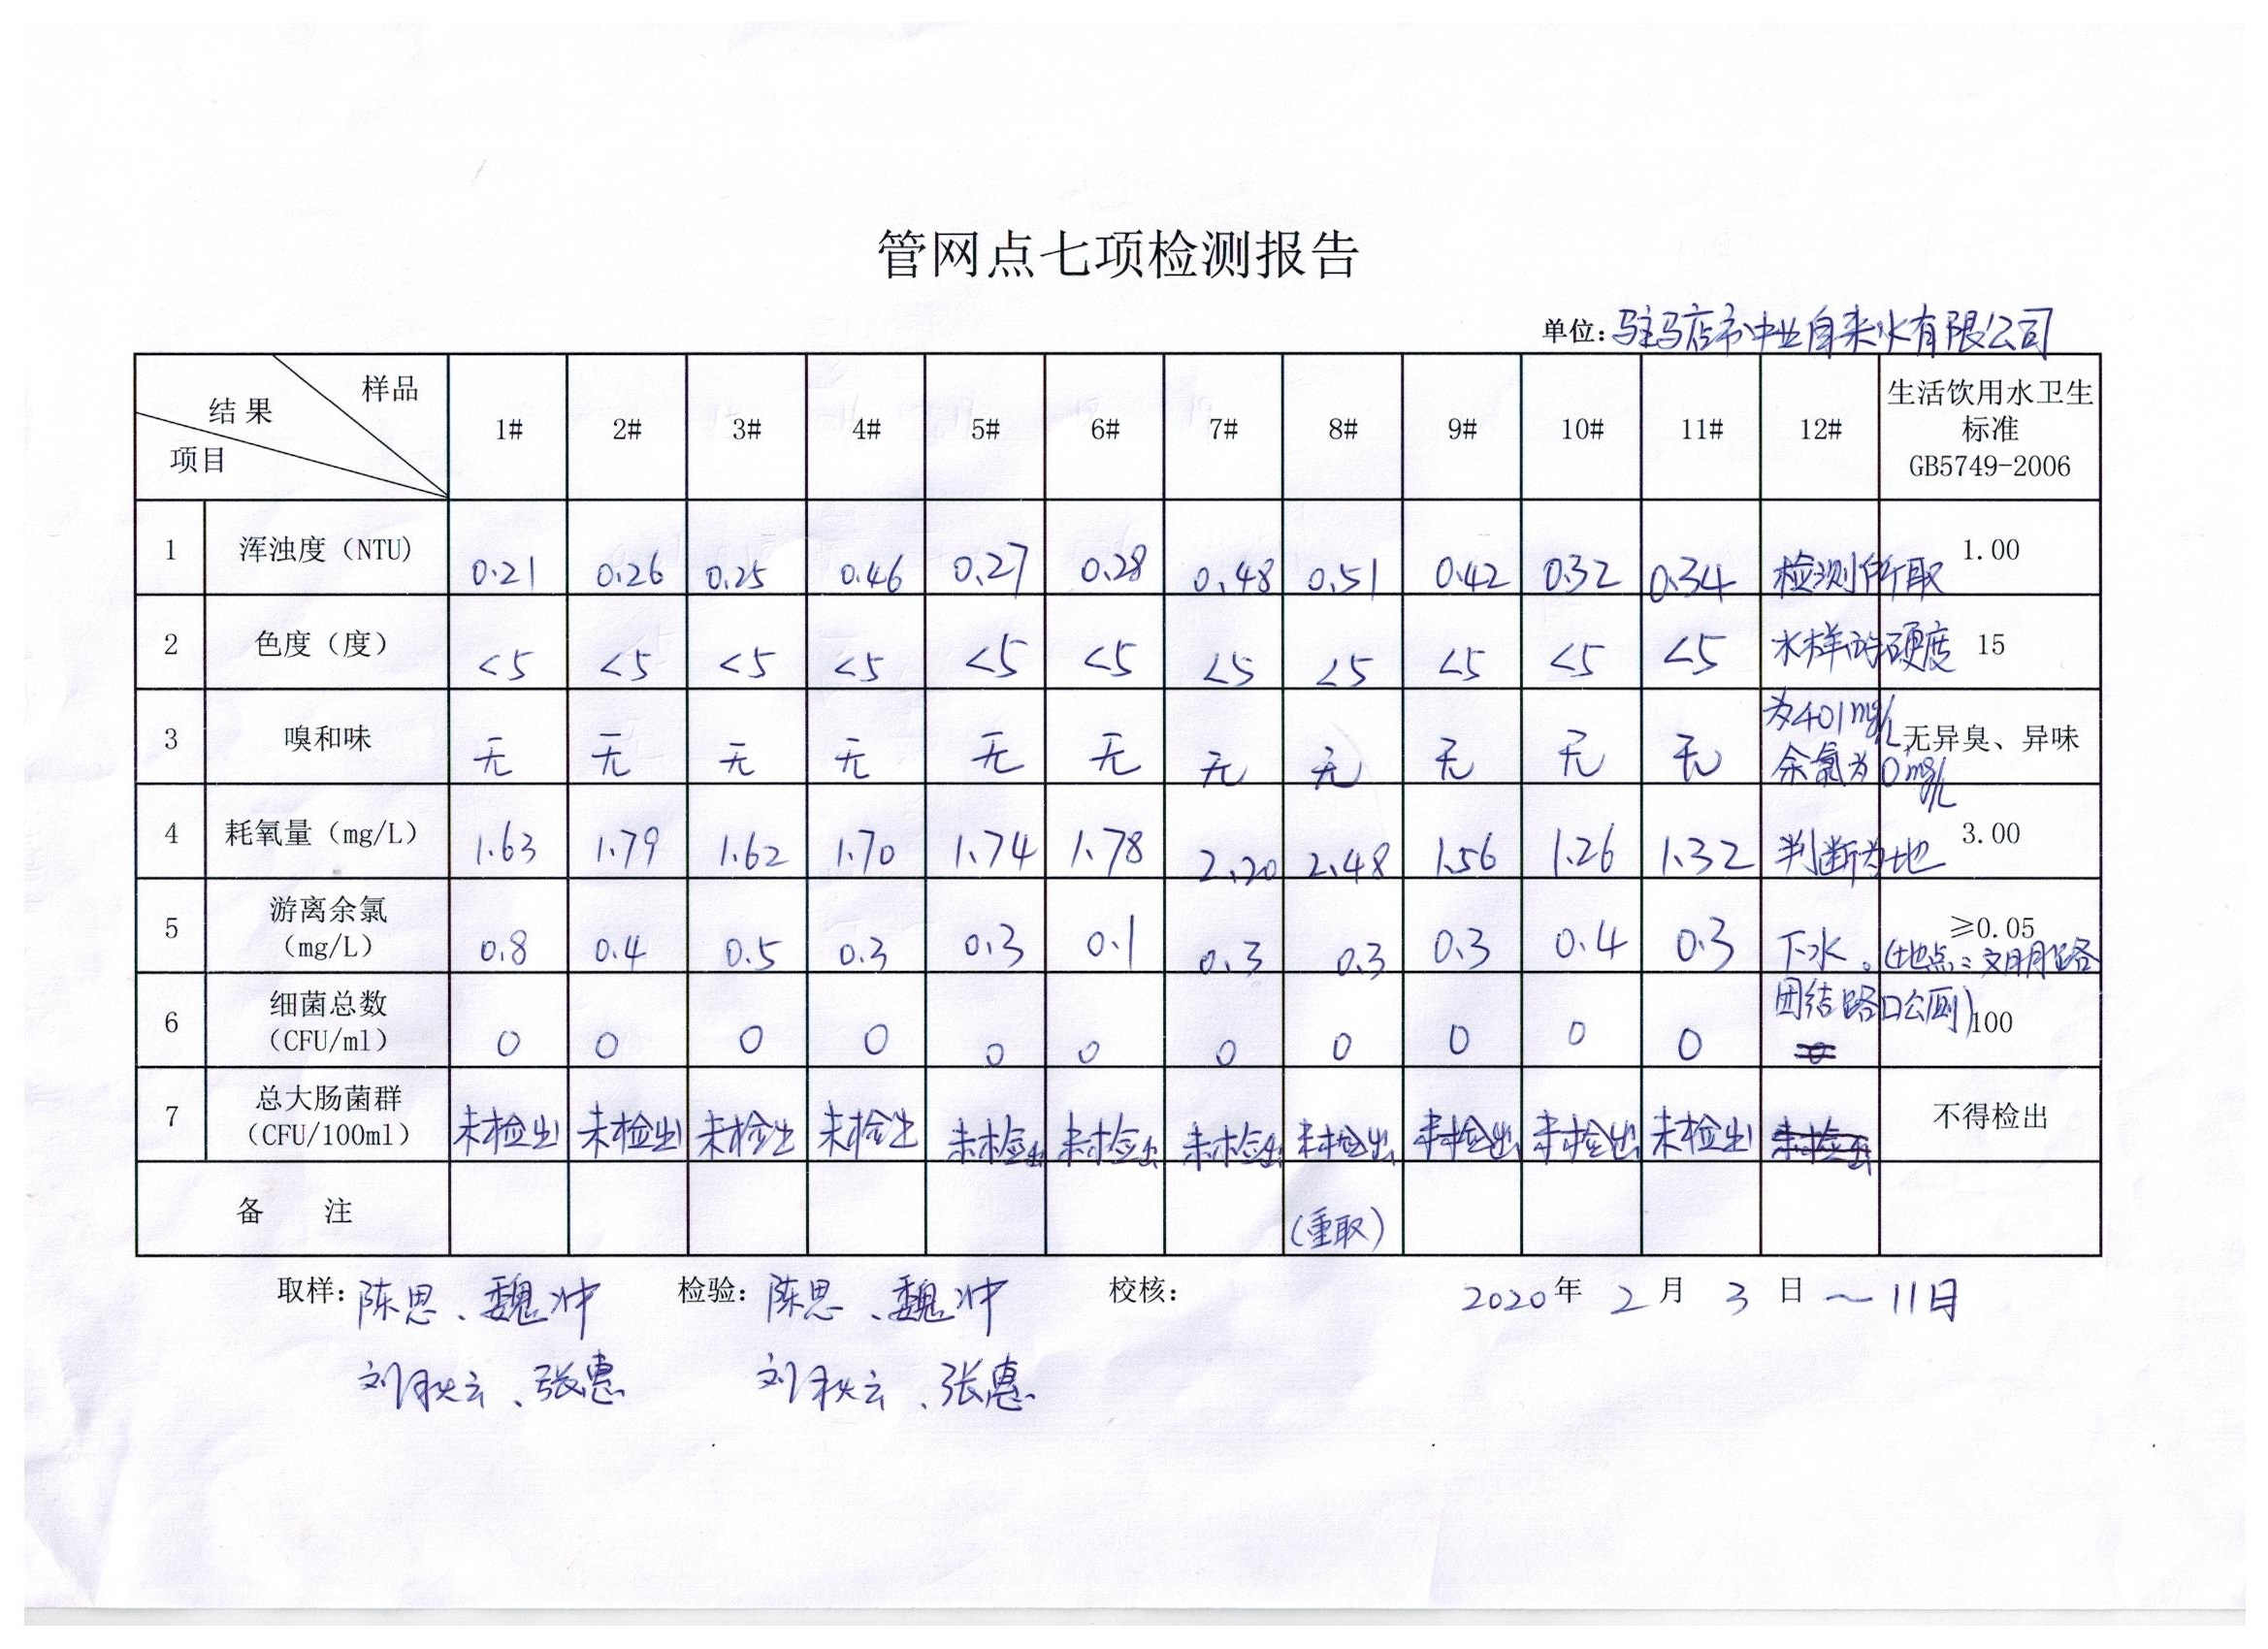 管网点七项检测报告
单位：驻马店市中业自来水有限公司
样品 结果 项目 1# 2# 3# 4# 5# 6# 7# 8# 9# 10# 11# 12# 生活饮用水卫生标准 GB5749-2006
1 浑浊度（NTU) 0.21 0.26 0.25 0.46 0.27 0.28 0.48 0.51 0.42 0.32 0.34 检测所取 1.00
2 色度（度） <5 <5 <5 <5 <5 <5 <5 <5 <5 <5 <5 水样的硬度 15
3 嗅和味 无 无 无 无 无 无 无 无 无 无 无 为401mg/L 余氯为0mg/L 无异臭、异味
4 耗氧量（mg/L） 1.63 1.79 1.62 1.70 1.74 1.78 2.20 2.48 1.56 1.26 1.32 判断为地 3.00
5 游离余氯（mg/L） 0.8 0.4 0.5 0.3 0.3 0.1 0.3 0.3 0.3 0.4 0.3 下水。(地点：文明路 ≥0.05
6 细菌总数（CFU/ml） 0 0 0 0 0 0 0 0 0 0 0 团结路口公厕) 0 100
7 总大肠菌群（CFU/100ml） 未检出 未检出 未检出 未检出 未检出 未检出 未检出 未检出 未检出 未检出 未检出 未检出 不得检出
备 注 (重取)
取样：陈思、魏冲 检验：陈思、魏冲 校核： 2020年 2月 3日～11日
刘秋云、张惠 刘秋云、张惠